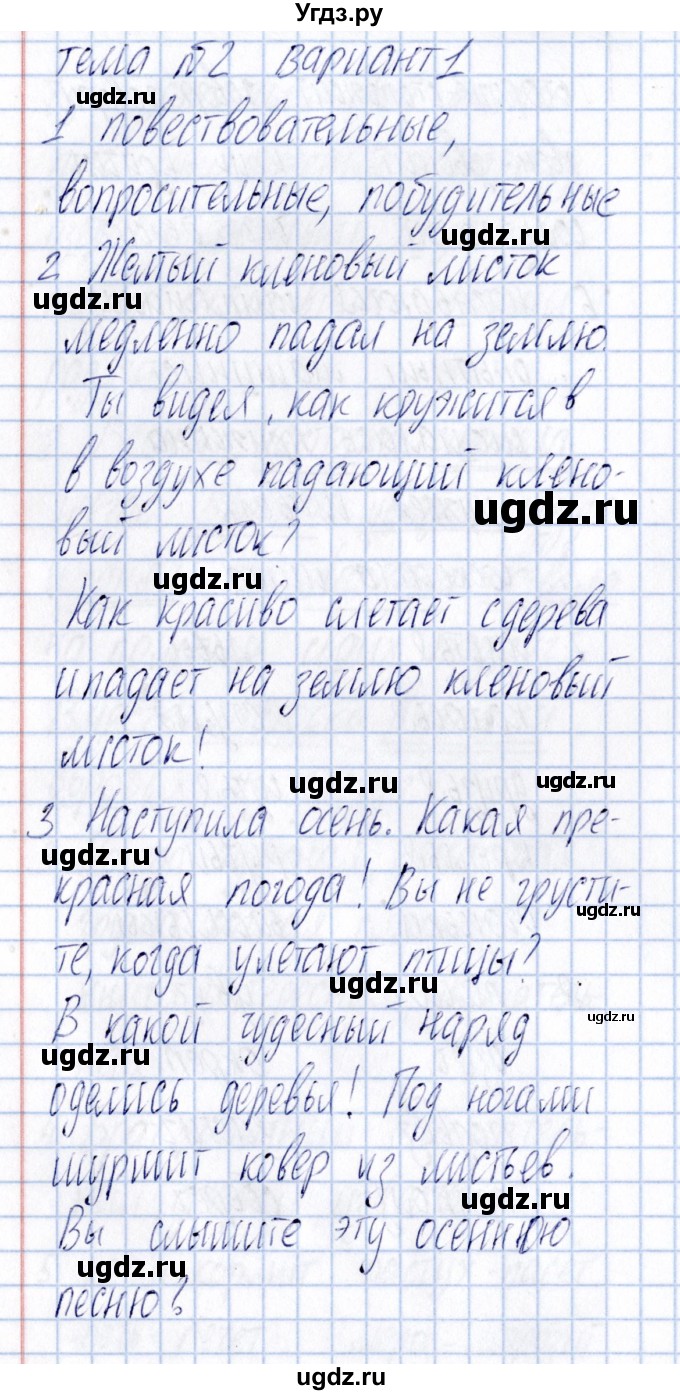 Угдз.ру
тема №2 вариант 1
ugdz.ru
1 повествовательные,
вопросительные, побудительные
ugdz.ru
2 Желтый кленовый листок
ugdz.ru
медленно падал на землю.
Ты видел, как кружится в
в воздухе падающий клено-
ugdz.ru
вый листок?
ugdz.ru
Как красиво слетает с дерева
и падает на землю кленовый
листок!
ugdz.ru ugdz.ru
3 Наступила осень. Какая пре-
ugdz.ru
красная погода! Вы не грусти-
ugdz.ru
те, когда улетают птицы?
ugdz.ru
В какой чудесный наряд
ugdz.ru
ugdz.ru
оделись деревья! Под ногами
шуршит ковер из листьев.
ugdz.ru
Вы слышите эту осеннюю
ugdz.ru
песню?
ugdz.ru